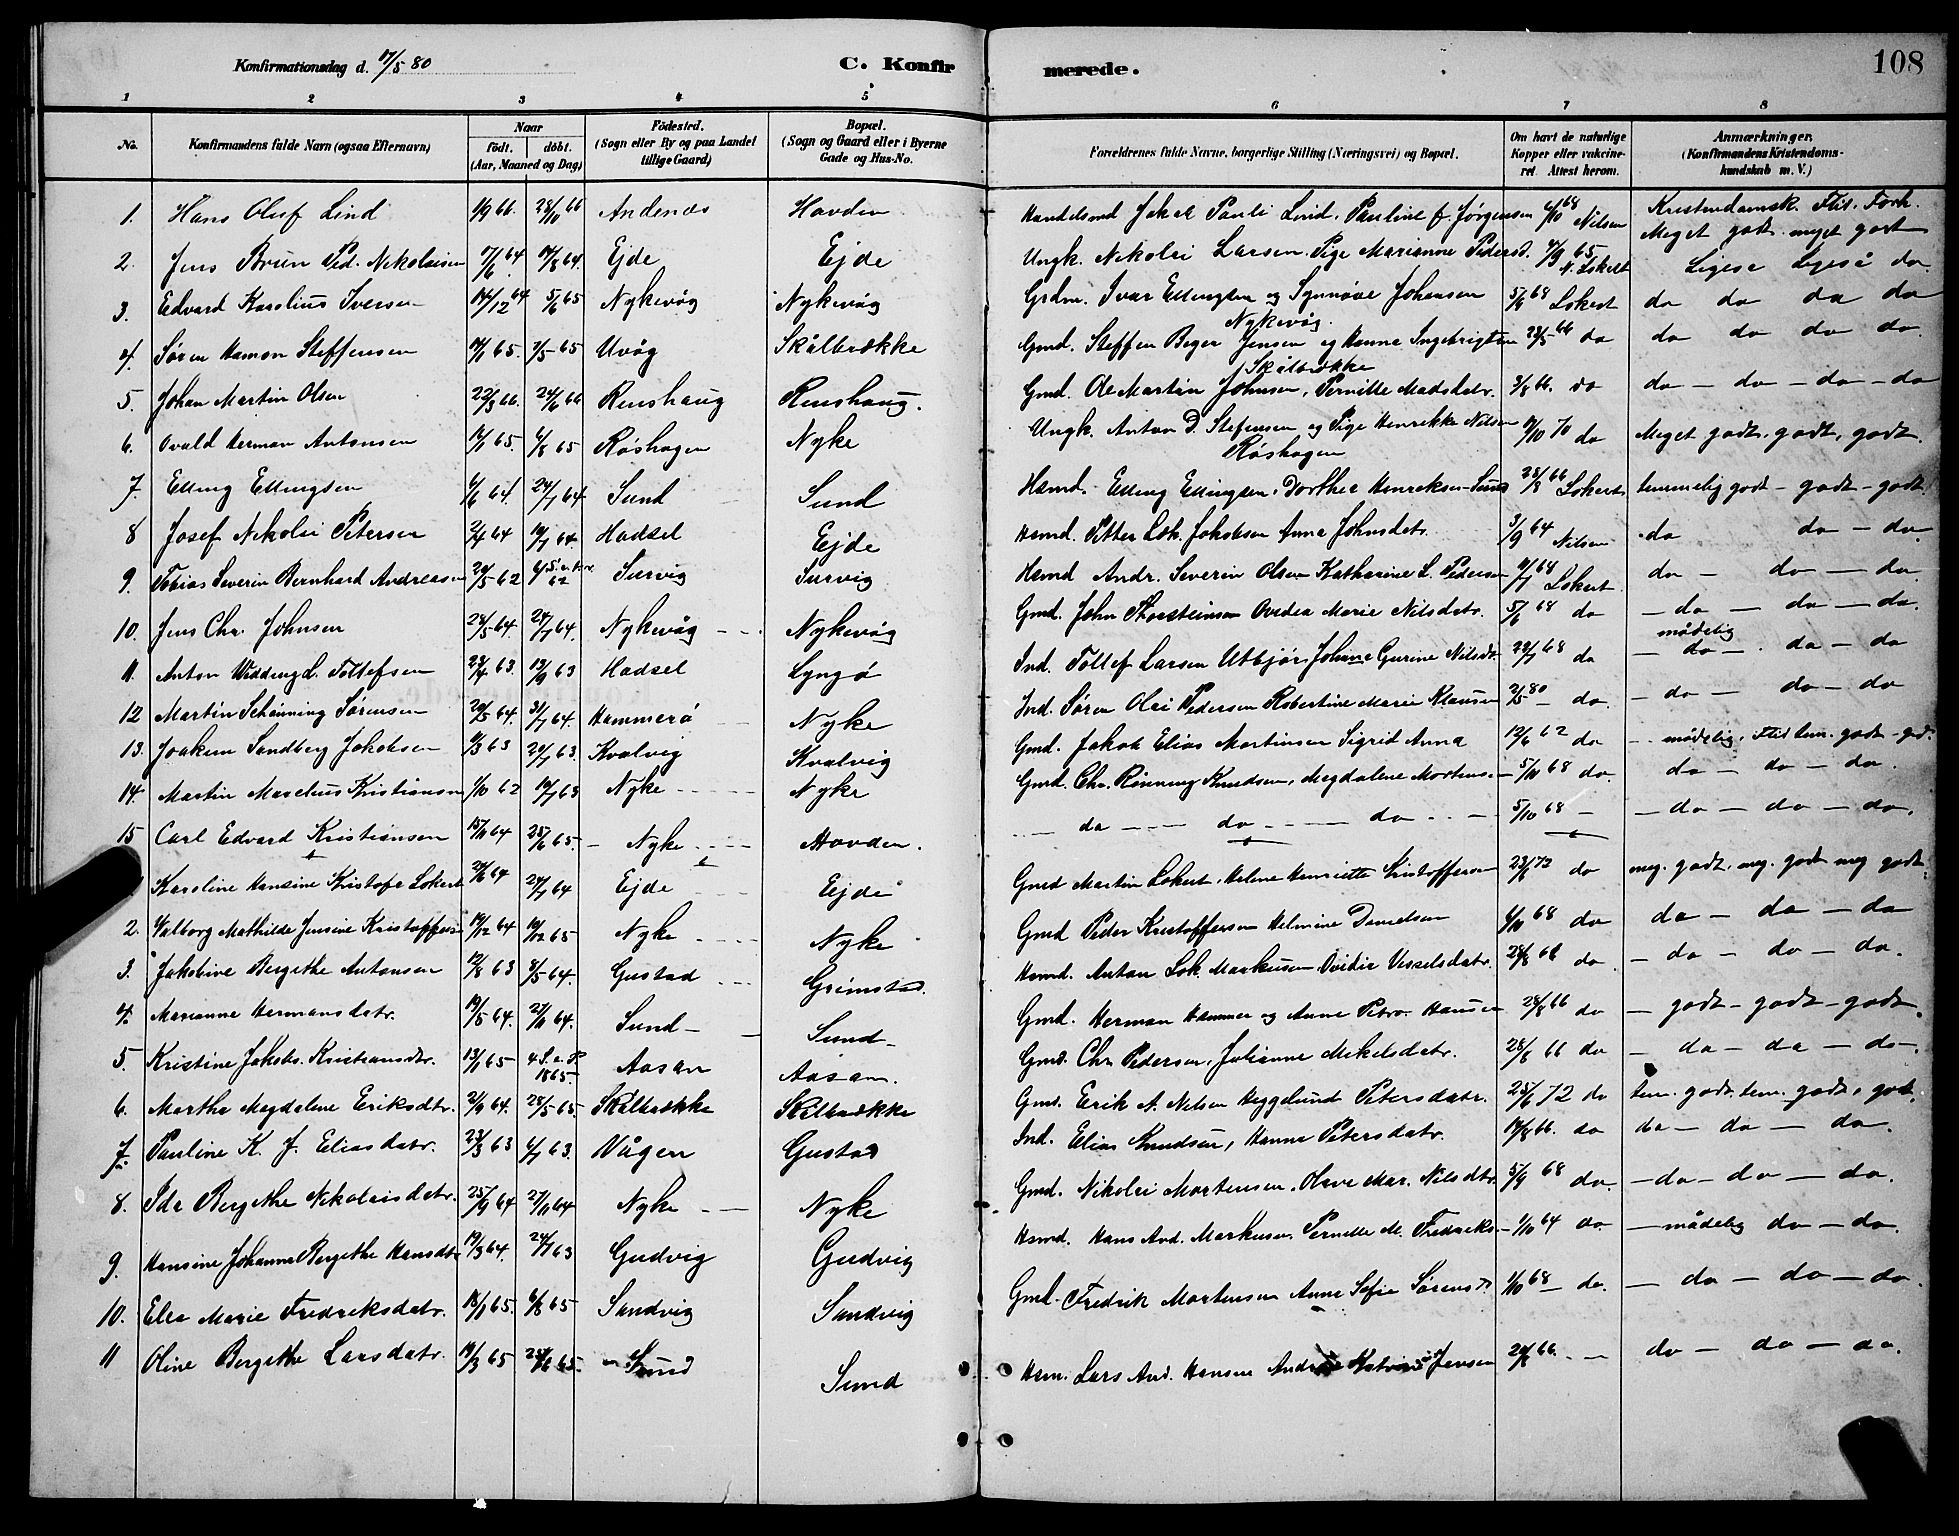 Konfirmationsdag d. 17/5 80
C. Konfirmerede.
108
1 2 3 4 5 6 7 8
No.
Konfirmandens fulde Navn (ogsaa Efternavn)
Naar
födt. döbt.
(Aar, Maaned og Dag)
Födested.
(Sogn eller By og paa Landet
tillige Gaard)
Bopæl.
(Sogn og Gaard eller i Byerne
Gade og Hus-No.
Forældrenes fulde Navne, borgerlige Stilling (Næringsvei) og Bopæl.
Om havt de naturlige
Kopper eller vakcine-
ret. Attest herom.
Anmærkninger.
(Konfirmandens Kristendoms-
kundskab m. V.)
Kristendomsk. Flit. Forh.
1. Hans Oluf Lind 1/9 66. 28/10 66 Andenæs Hovden Handelsmd Jakob Pauli Lind. Pauline f. Jørgensen 68 Nilsen Meget godt. meget godt
2. Jens Brun Ped. Nikolaisen 17/6 64 64. Ejde Ejde Ungk. Nikolai Larsen. Pige Marianne Pedersd. 65 N. Lokert Ligesa Ligeså do
3. Edvard Karolius Iversen 14/12 64 5/6 65 Nykevåg Nykevåg Grdm. Ivar Ellingsen og Synnøve Johansen 68 Lokert do do do do
Nykevåg.
4. Søren Hamon Steffensen 65. 7/5 65 Uvåg Skålbrække Gmd. Steffen Beger Jensen og Hanna Ingebrigtsen 23/5 66 do do do do do
Skålbrække
5. Johan Martin Olsen 22/3 66. 24/6 66 Renshaug Renshaug. Gmd. Ole Martin Johnsen, Pernille Madsdatr. 3/8 66. do do - do - do - do
6. Ovald Herman Antonsen 65. 6/8 65 Røshagen Nyke Ungk. Anton D. Stefensen og Pige Henrikke Nilsen 70 do Meget godt, godt, godt.
Røshagen
7. Elling Ellingsen 6/6 64. 24/7 64 Sund Sund Hsmd. Elling Ellingsen, Dorthea Henriksen Sund 28/8 66 Lokert temmelig godt - godt - godt
8 Josef Nikolai Petersen 2/4 64 64. Hadsel Ejde Hsmd. Petter Lok. Jakobsen Anna Johnsdatr. 3/9 64 Nilsen do do - do
9. Tobias Severin Bernhard Andreasen 62 62 Survig Survig Hsmd Andr. Severin Olsen Katharine L. Pedersen 64 Lokert. do - do - do
10. Jens Chr. Johnsen 28/5 64. 24/7 64. Nykevåg Nykevåg Gmd. John Thorsteinsen Ovedia Marie Nilsdatr. 5/6 68 do - do - do - do.
11. Anton Widding L. Tollefsen 23/4 63. 13/9 63 Hadsel Lyngø Ind. Tollef Larsen Utbjør, Johane Gurine Nilsdtr 68 do mådelig - do - do - do
12 Martin Schønning Sørensen 20/5 64. 31/7 64. Hammerø Nyke Ind. Søren Olai Pedersen Robertine Marie Klausen 2/5 80 do. - do - do - do
13. Joakim Sandberg Jakobsen 63 63. Kvalvig Kvalvig Gmd. Jakob Elias Martinsen Sigrid Anna 12/6 62 do mådelig, Flid tem. godt - god.
14. Martin Marelius Kristiansen 1/10 62 63 Nyke Nyke Gmd. Chr. Rønning Knudsen, Magdalene Mortens 5/10 68 do do - do - do.
15 Carl Edvard Kristiansen 15/11 64 25/6 65. Nyke Hovden. do do do 5/10 68 - - do - do - do.
Karoline Hansine Kristofa Lokert 64 24/7 64 Ejde Ejde Gmd Martin Lokert, Helene Henriette Kristoffersen 73 do meg. godt, meg. godt meg godt.
2. Valborg Mathilde Jensine Kristoffersen 19/12 64 65 Nyke Nyke Gmd Peder Kristoffersen Helmine Danielsen 68 do do - do - do
3. Jakobine Bergithe Antonsen 12/8 63 8/5 64. Gustad Grimstad. Hsmd. Anton Lok. Markusen Ovidia Vesselsdatr. 28/8 68 do - do - do - do.
4. Marianne Hermansdatr. 19/5 64. 27/11 64. Sund Sund Gmd. Herman Hammer og Anne Petro. Hansen 28/8 66 do - godt - godt - godt.
5. Kristine Jakobs. Kristiansdtr. 13/1 65 1865. Aasan Aasan. Gmd. Chr Pedersen, Julianne Mikelsdatr. 28/8 66 do - do - do - do.
6. Martha Magdalene Eriksdtr. 64. 28/5 65 Skålbrække Skålbrække Gmd. Erik A. Nilsen Heggelund Petersdatr. 25/6 72 do tem. godt. tem. godt, godt.
7. Pauline K. J. Eliasdatr. 23/3 63 63. Vågen Gustad Ind. Elias Knudsen, Hanna Petersdatr. 66. do do - do - do.
8. Ida Bergithe Nikolaisdatr. 25/9 64 27/11 64 Nyke Nyke Gmd. Nikolai Mortensen. Olava Mar. Nilsdtr. 5/9 68 do. - do - do - do.
9. Hansine Johanna Bergithe Hansdtr. 19/3 64. 63 Gudvig Gudvig Hsmd. Hans And. Markusen Pernelle M. Fredriks 1/10 64 do - mådelig do - do.
10. Elea Marie Fredriksdatr. 18/1 65. 6/8 65 Sandvig Sandvig Gmd. Fredrik Mortensen Anne Sofie Sørensd. 1/10 68 do. - do - do - do.
11 Oline Bergithe Larsdatr. 19/3 65 25/6 65. Sund Sund Hsm. Lars And. Hansen Jensen 66. do - do - do.